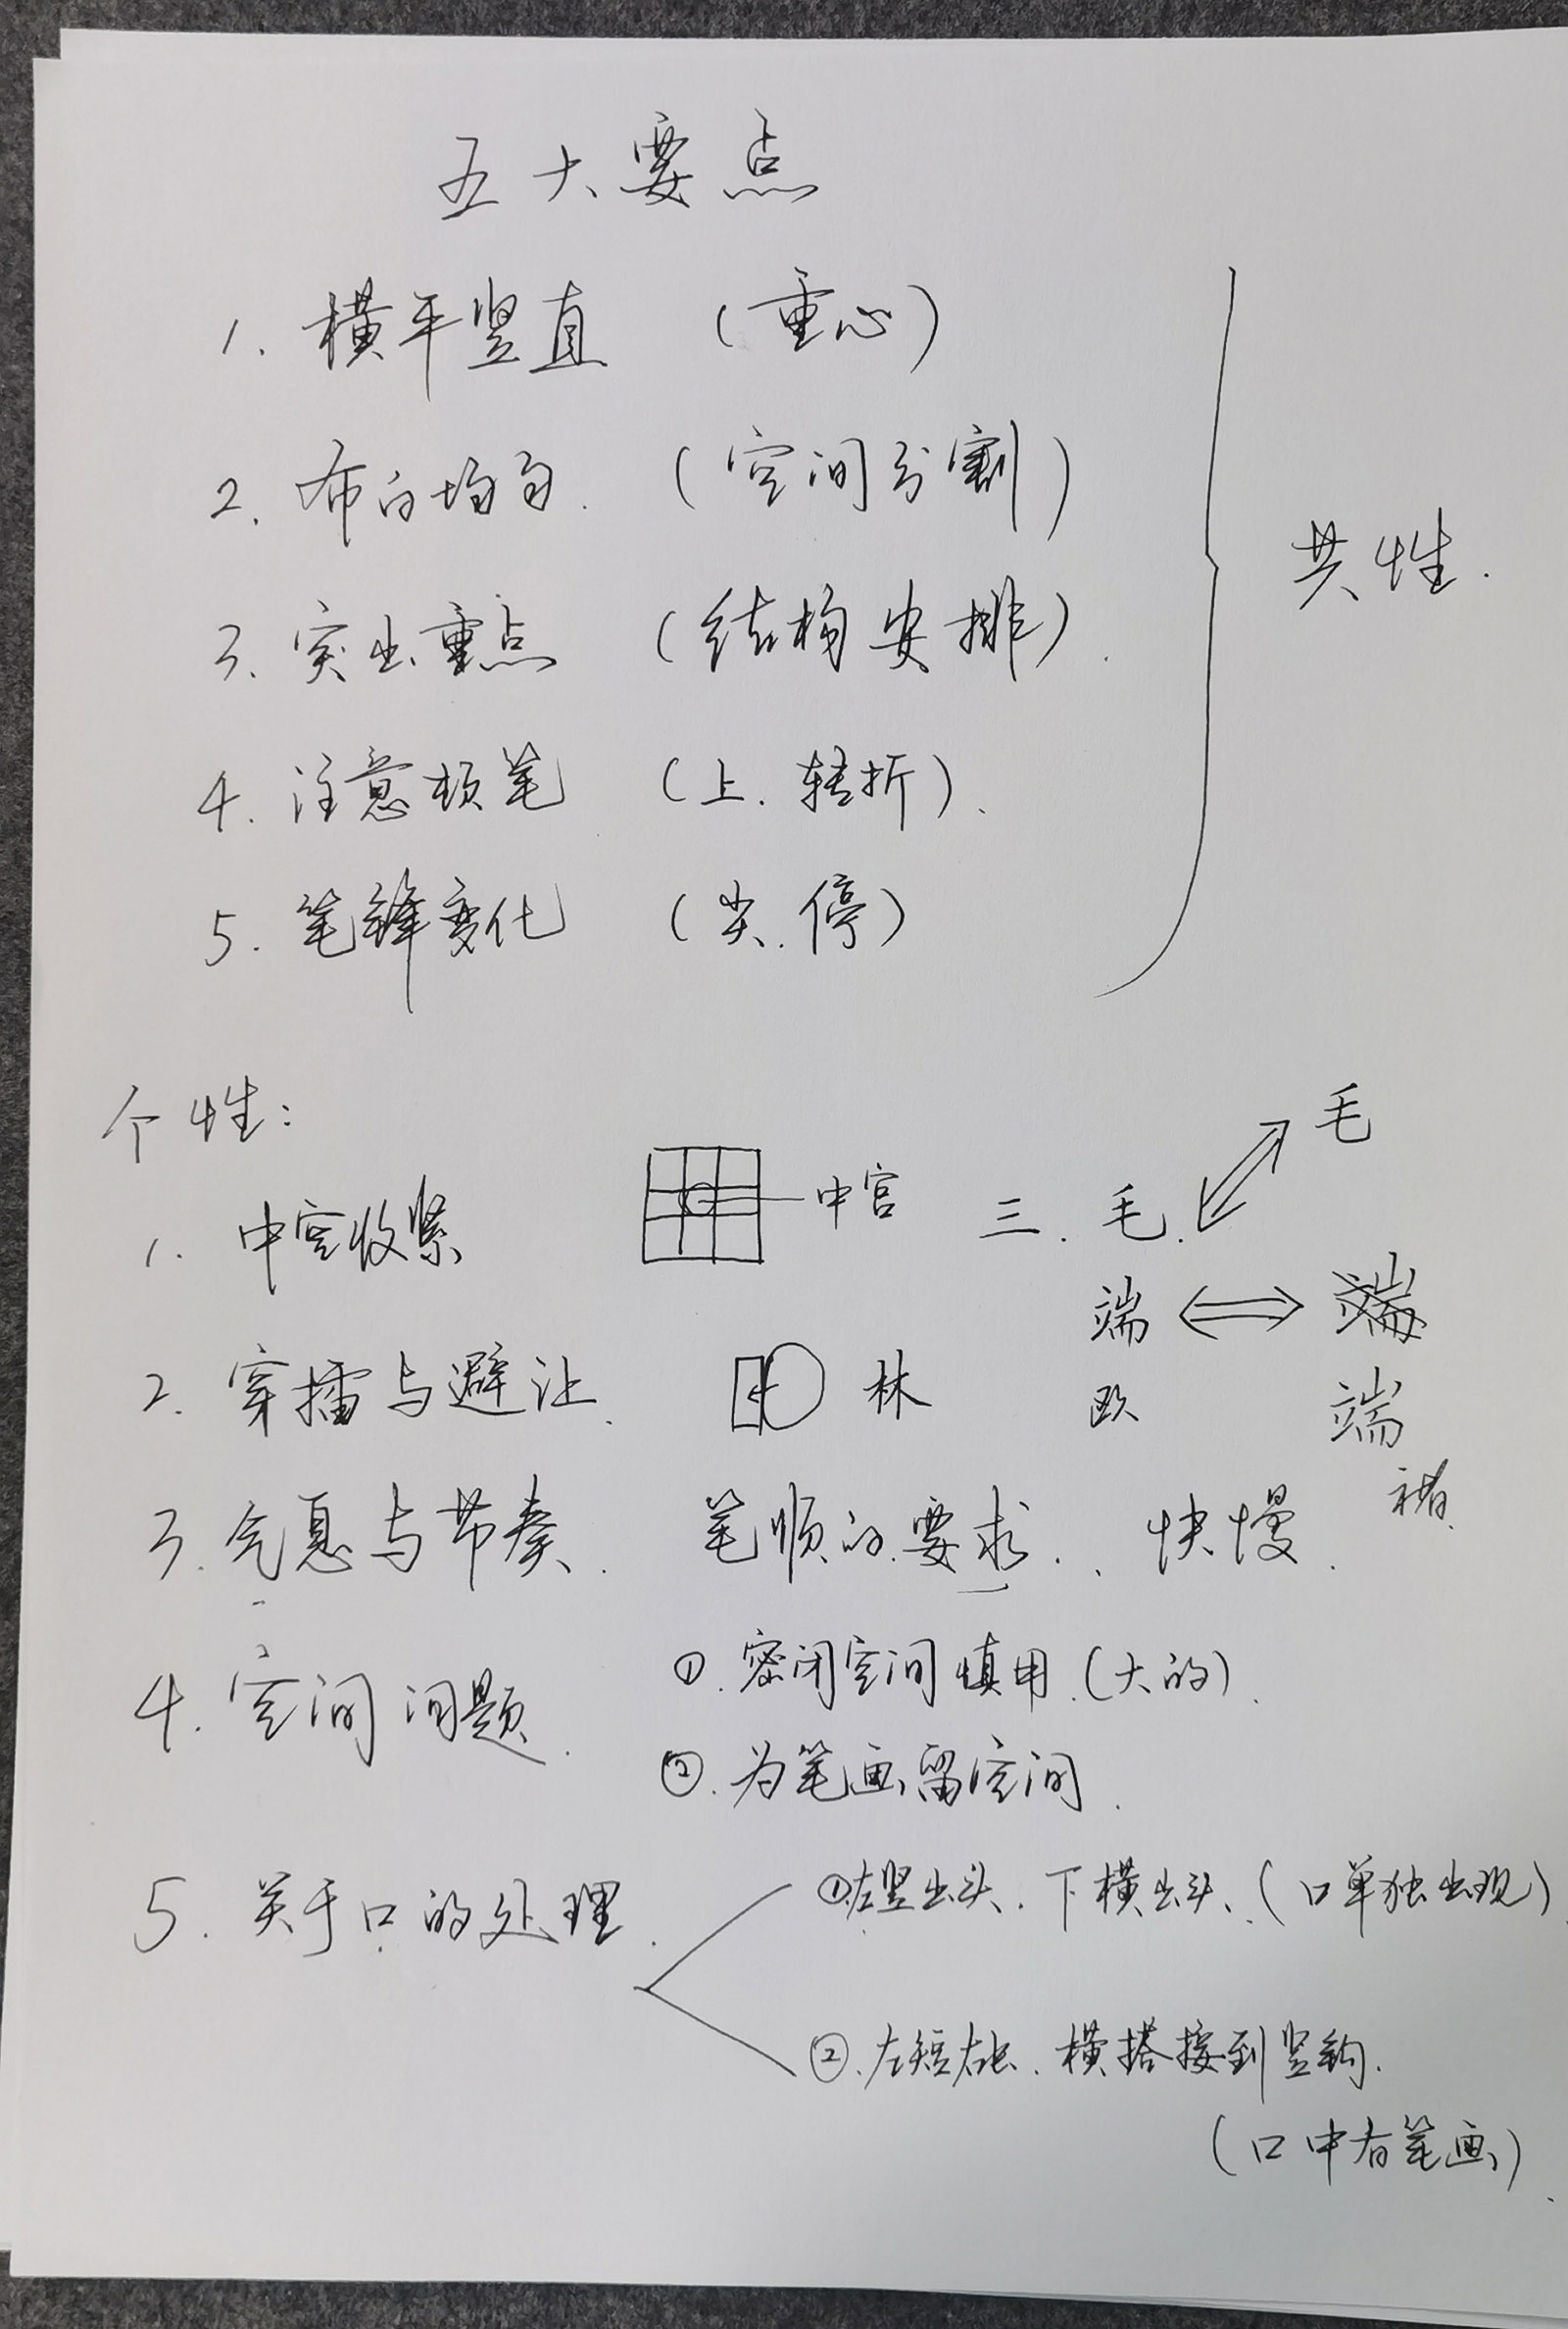 五大要点
1. 横平竖直 (重心)
2. 布白均匀. (空间分割)
3. 突出重点 (结构安排).
4. 注意顿笔 (上. 转折).
5. 笔锋变化 (尖. 停)
共性.
个性:
1. 中宫收紧 中宫 三. 毛. 毛
端 端
2. 穿插与避让. 林 欧 端
褚.
3. 气息与节奏. 笔顺的要求. 、快慢.
4. 空间问题. ①. 密闭空间慎用.(大的).
②. 为笔画留空间.
5. 关于口的处理. ①左竖出头. 下横出头.(口单独出现)
②. 左短右长. 横搭接到竖钩.
(口中有笔画).